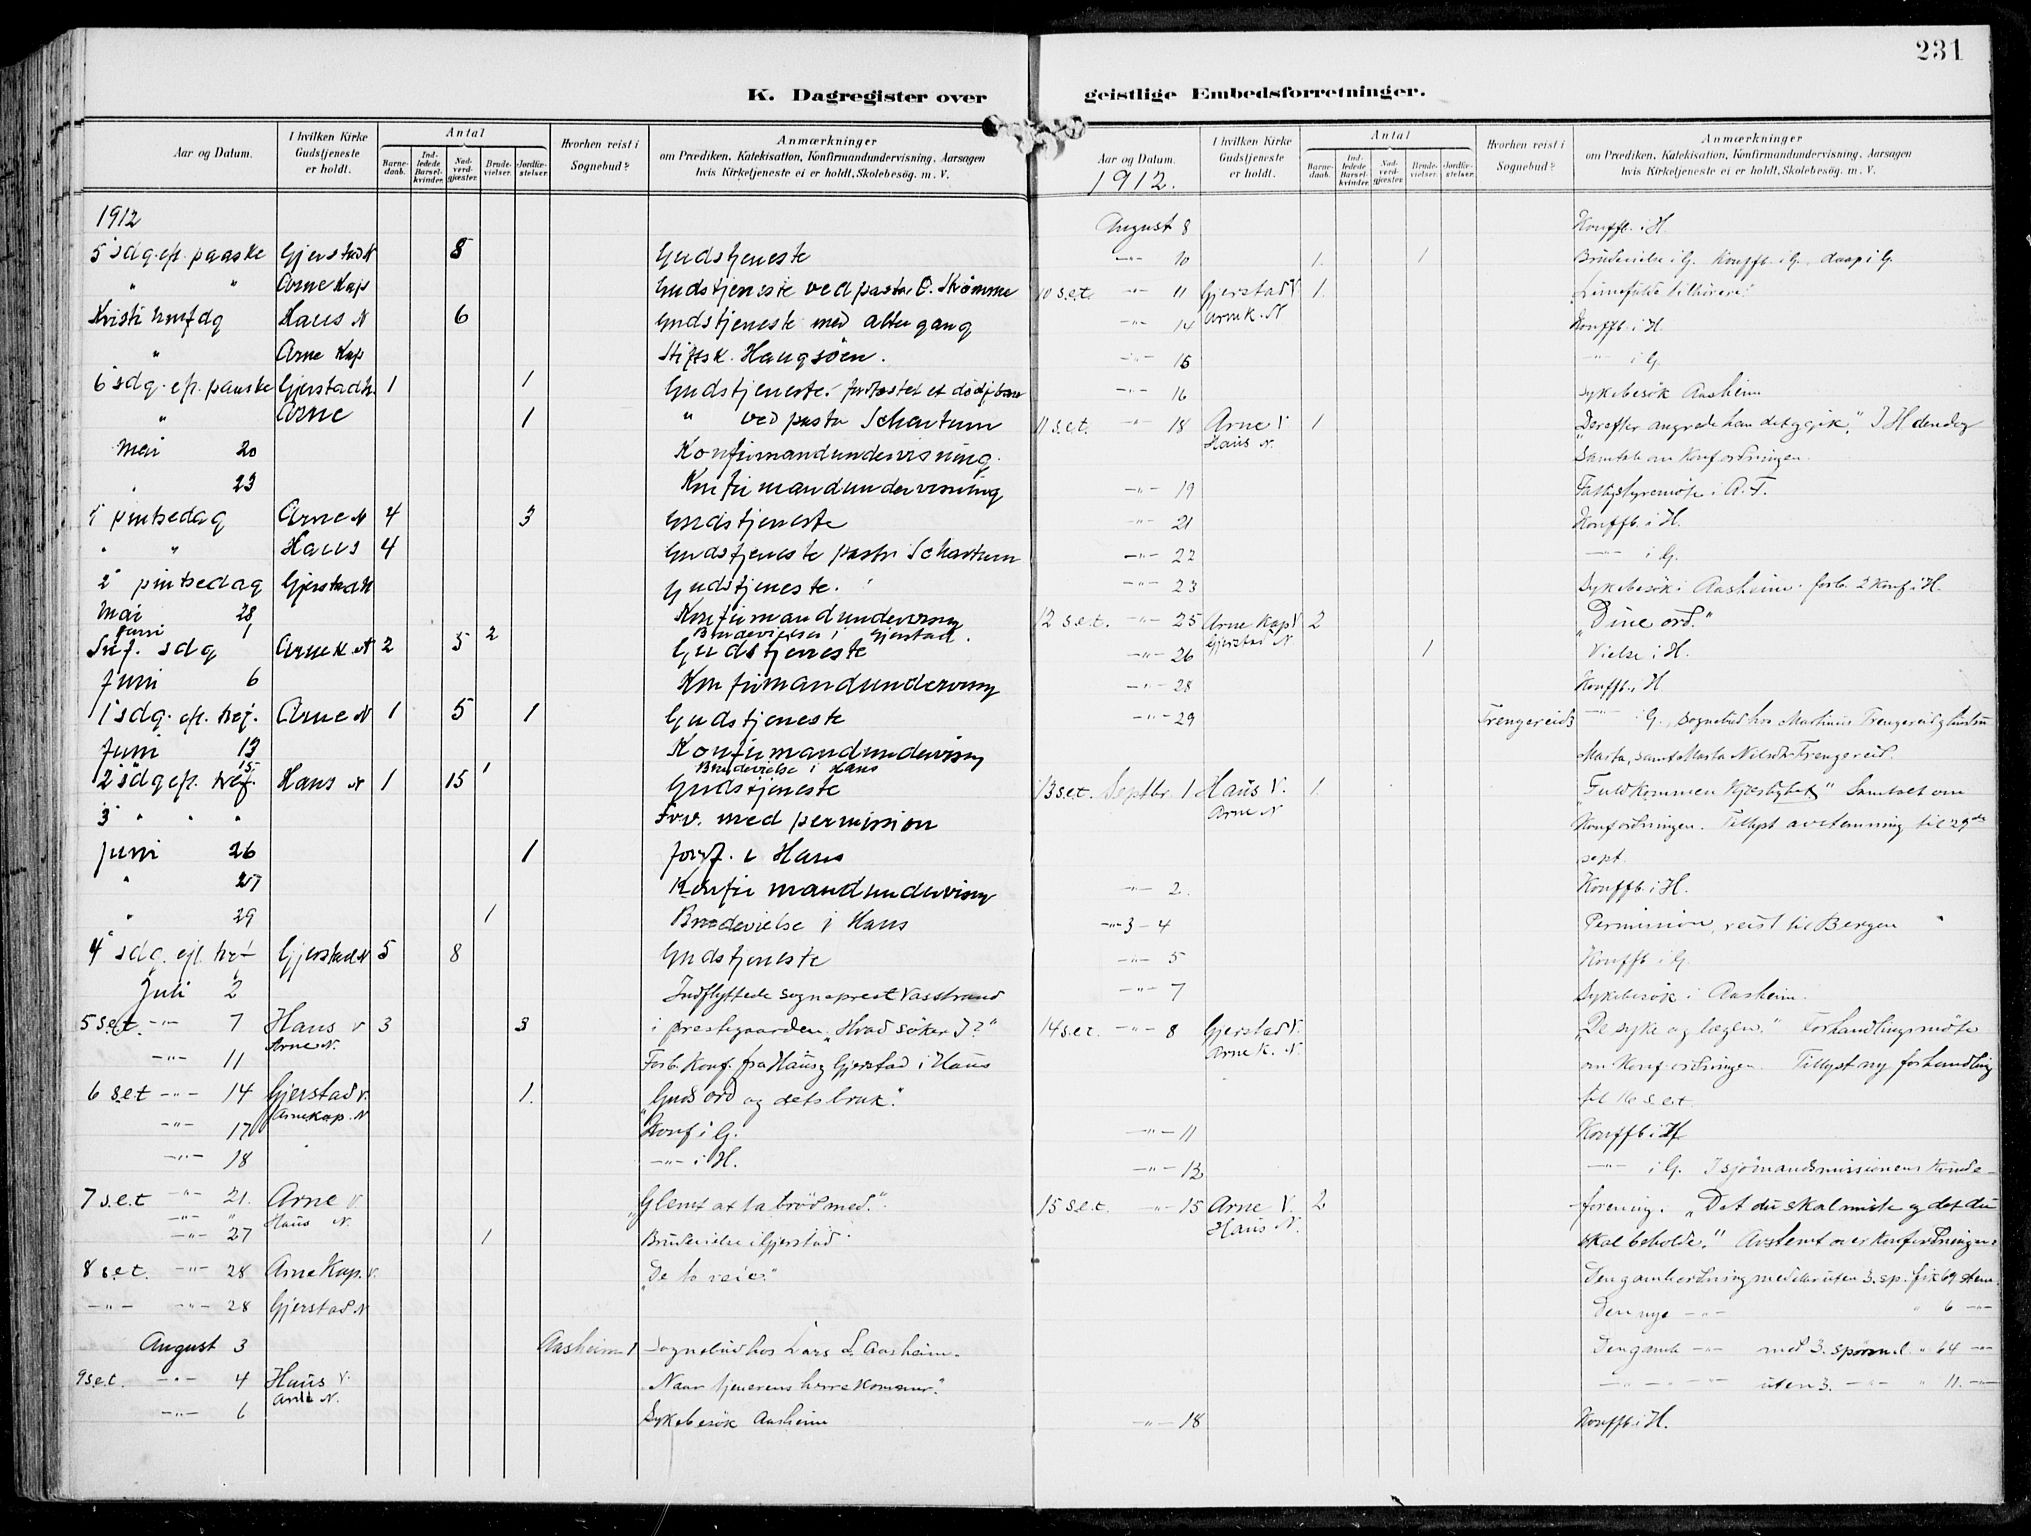 231
K. Dagregister over
Aar og Datum.
I hvilken Kirke Gudstjeneste er holdt.
Antal
Barne-daab.
Ind-ledede Barsel-kvinder.
Nad-verd-gjæster.
Brude-vielser.
Jordfæ-stelser.
Hvorhen reist i Sognebud?
Anmærkninger
om Prædiken, Katekisation, Konfirmandundervisning, Aarsagen
hvis Kirketjeneste ei er holdt, Skolebesøg. m. V.
1912
5' sdg. ef. paaske Gjerstad N 8 Gudstjeneste
" " Arne Kap Gudstjeneste ved pastor O. Strømme
Kristi hmfdg Haus N 6 Gudstjeneste med altergang
" Arne Kap Stiftsk. Haugsöen.
6' sdg. ef. paaske Gjerstad N. 1 1 Gudstjeneste. jordfæstet et dödf. barn
" Arne 1 " ved pastor Schartum
Mai 20 Konfirmandundervisning.
" 23 Konfirmandundervisning
1' pintsedag Arne N 4 3 Gudstjeneste
" " Haus 4 Gudstjeneste pastor Schartum
2' pintsedag Gjerstad N Gudstjeneste.
Mai 28 Konfirmandundervisng
Juni 1 2 Brudevielser i Gjerstad.
Tref. sdg Arne K. N 2 5 Gudstjeneste
Juni 6 Konfirmandundervisng
1' sdg. ef. tref. Arne N 1 5 1 Gudstjeneste
Juni 13 Konfirmandundervisng
15 1 Brudevielse i Haus
2' sdg ef. tref. Haus N 1 15 Gudstjeneste
3' " " " Frv. med permission
Juni 26 1 jordf. i Haus
" 27 Konfirmandundervisng
" 29 1 Brudevielse i Haus
4' sdg. eft. tref Gjerstad N 5 8 Gudstjeneste
Juli 2 Indflyttede sogneprest Vasstrand
5 s.e.t. -"- 7 Haus V 3 3 i prestegaarden. "Hvad söker I?"
Arne N.
-"- 11 Forb. Konf. fra Haus og Gjerstad i Haus
6 s.e.t -"- 14 Gjerstad V. 1. "Guds ord og dets bruk."
Arne kap. N
-"- 17 Konf i G.
-"- 18 -"- i H.
7 s.e.t -"- 21. Arne V. "Glemt at ta bröd med."
-"- " Haus N.
-"- 27 1 Brudevielse i Gjerstad.
8 s.e.t. -"- 28 Arne Kap. V. "De to veie."
-"- -"- 28 Gjerstad N
August 3 Aasheim 1 Sognebud hos Lars L. Aasheim.
9 s.e.t. -"- 4 Haus V. "Naar tjenerens herre kommer."
Arne N.
-"- 6 Sykebesök Aasheim
geistlige Embedsforretninger.
Aar og Datum.
1912.
I hvilken Kirke Gudstjeneste er holdt.
Antal
Barne-daab.
Ind-ledede Barsel-kvinder.
Nad-verd-gjæster.
Brude-vielser.
Jordfæ-stelser.
Hvorhen reist i Sognebud?
Anmærkninger
om Prædiken, Katekisation, Konfirmandundervisning, Aarsagen
hvis Kirketjeneste ei er holdt, Skolebesøg. m. V.
August 8 Konffb. i H.
-"- 10 1. 1 Brudevielse i G. Konffb. i G. daap i G.
10 s.e.t. -"- 11 Gjerstad V 1.
Arne K. N
-"- 14 Konffb. i H
-"- 15 -"- i G.
-"- 16 Sykebesök Aasheim
11 s.e.t. -"- 18 Arne V 1 "Derefter angrede han det og gik." I H den dag
Haus N. Samtale om Konfordningen.
-"- 19 Fattigstyremöte i A. T.
-"- 21 Konffb. i H.
-"- 22 -"- i G.
-"- 23 Sykebesök i Aasheim. forb. 2 Konf i H.
12 s.e.t. -"- 25 Arne Kap V 2 "Dine ord."
Gjerstad N.
-"- 26 1 Vielse i H.
-"- 28 Konffb. i H
-"- 29 Trengereid 3 -"- i G., Sognebud hos Martinus Trengereid og hustru
Marta, samt Marta Nilsdtr Trengereid.
13 s.e.t. Septbr. 1 Haus V. 1. "Fuldkommen kjærlighet" Samtalt om
Arne N Konfordningen. Tillyst avstemning til 29de
sept.
-"- 2. Konffb. i H.
-"- 3-4 Permission, reist til Bergen
-"- 5 Konffb i G.
-"- 7 Sykebesök i Aasheim.
14 s.e.t. -"- 8 Gjerstad V. "De syke og lægen." Forhandlingsmöte
Arne K. N. om Konfordningen. Tillyst ny forhandling
til 16 s.e.t.
-"- 11 Konffb i H
-"- 12 -"- i G. I sjömandsmissionens Kvinde-
15 s.e.t. -"- 15 Arne V. 2 forening. "Det du skal miste og det du
Haus N. skal beholde." Avstemt over Konfordningen:
Den gamle ordning med uten 3. sp. fik 69 stem.
Den nye -"- " 6 -"-
Den gamle -"- med 3. spörsm. " 64 -"-
-"- -"- uten 3. -"- " 11. -"-
-"- 18 Konffb. i H.